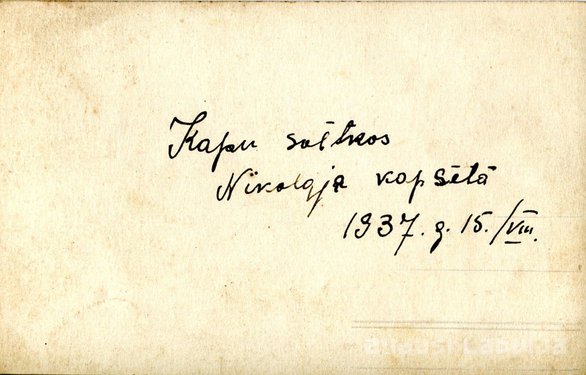 Kapu svētkos
Nikolaja kapsētā
1937. g. 15./VIII.